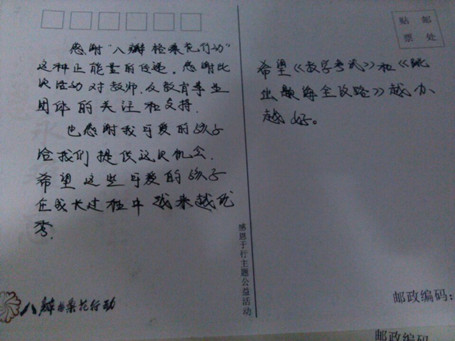 感谢“八瓣格桑花行动”
这种正能量的传递。感谢此
次活动对教师，及教育事业
团体的关注和支持。
也感谢我可爱的孩子
给我们提供这次机会。
希望这些可爱的孩子
在成长过程中越来越优
秀。
八瓣格桑花行动
感恩于行主题公益活动
贴 邮
票 处
希望《教学考试》和《
》越办
越好。
邮政编码：
邮政编码